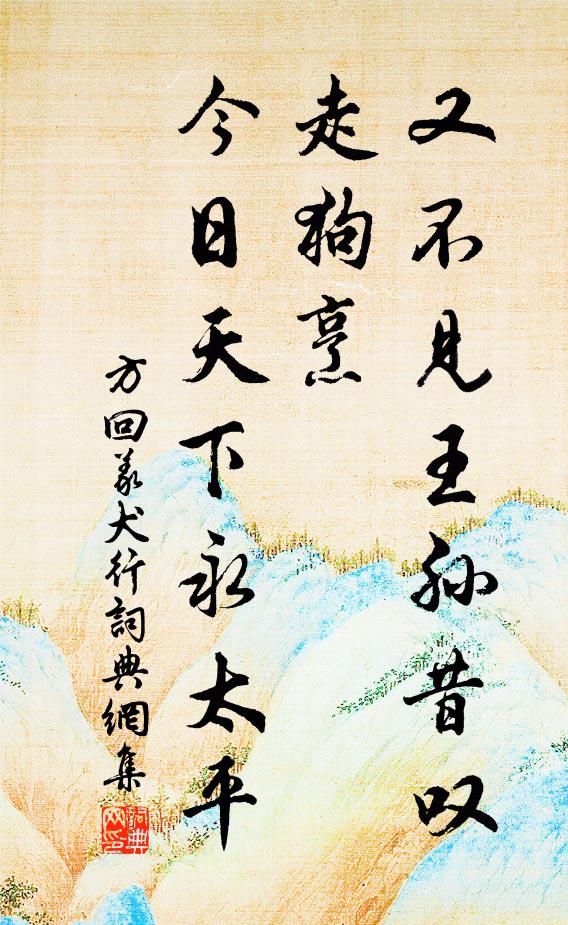 又不见王孙昔叹
走狗烹
今日天下永太平
方回義犬行詞典網集
詞典網印